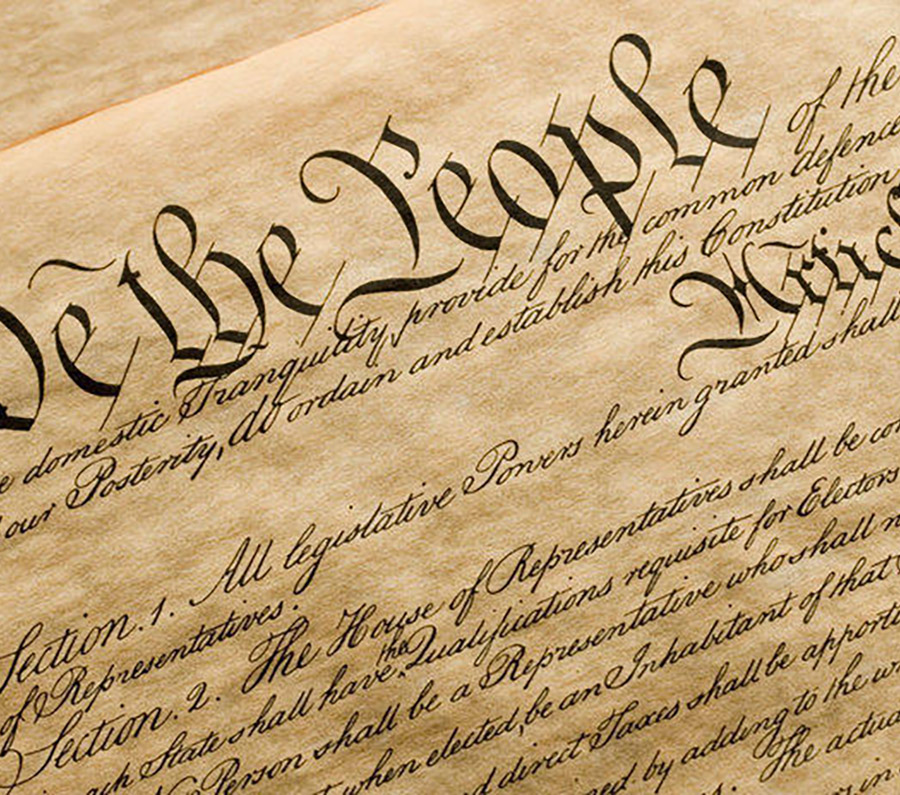 We the People of the
domestic Tranquility, provide for the common defence
our Posterity, do ordain and establish this Constitution
Section. 1. All legislative Powers herein granted shall
of Representatives.
Section. 2. The House of Representatives shall be
each State shall have the Qualifications requisite for Electors
No Person shall be a Representative who shall
when elected, be an Inhabitant of that
direct Taxes shall be
by adding to the
The actual
in